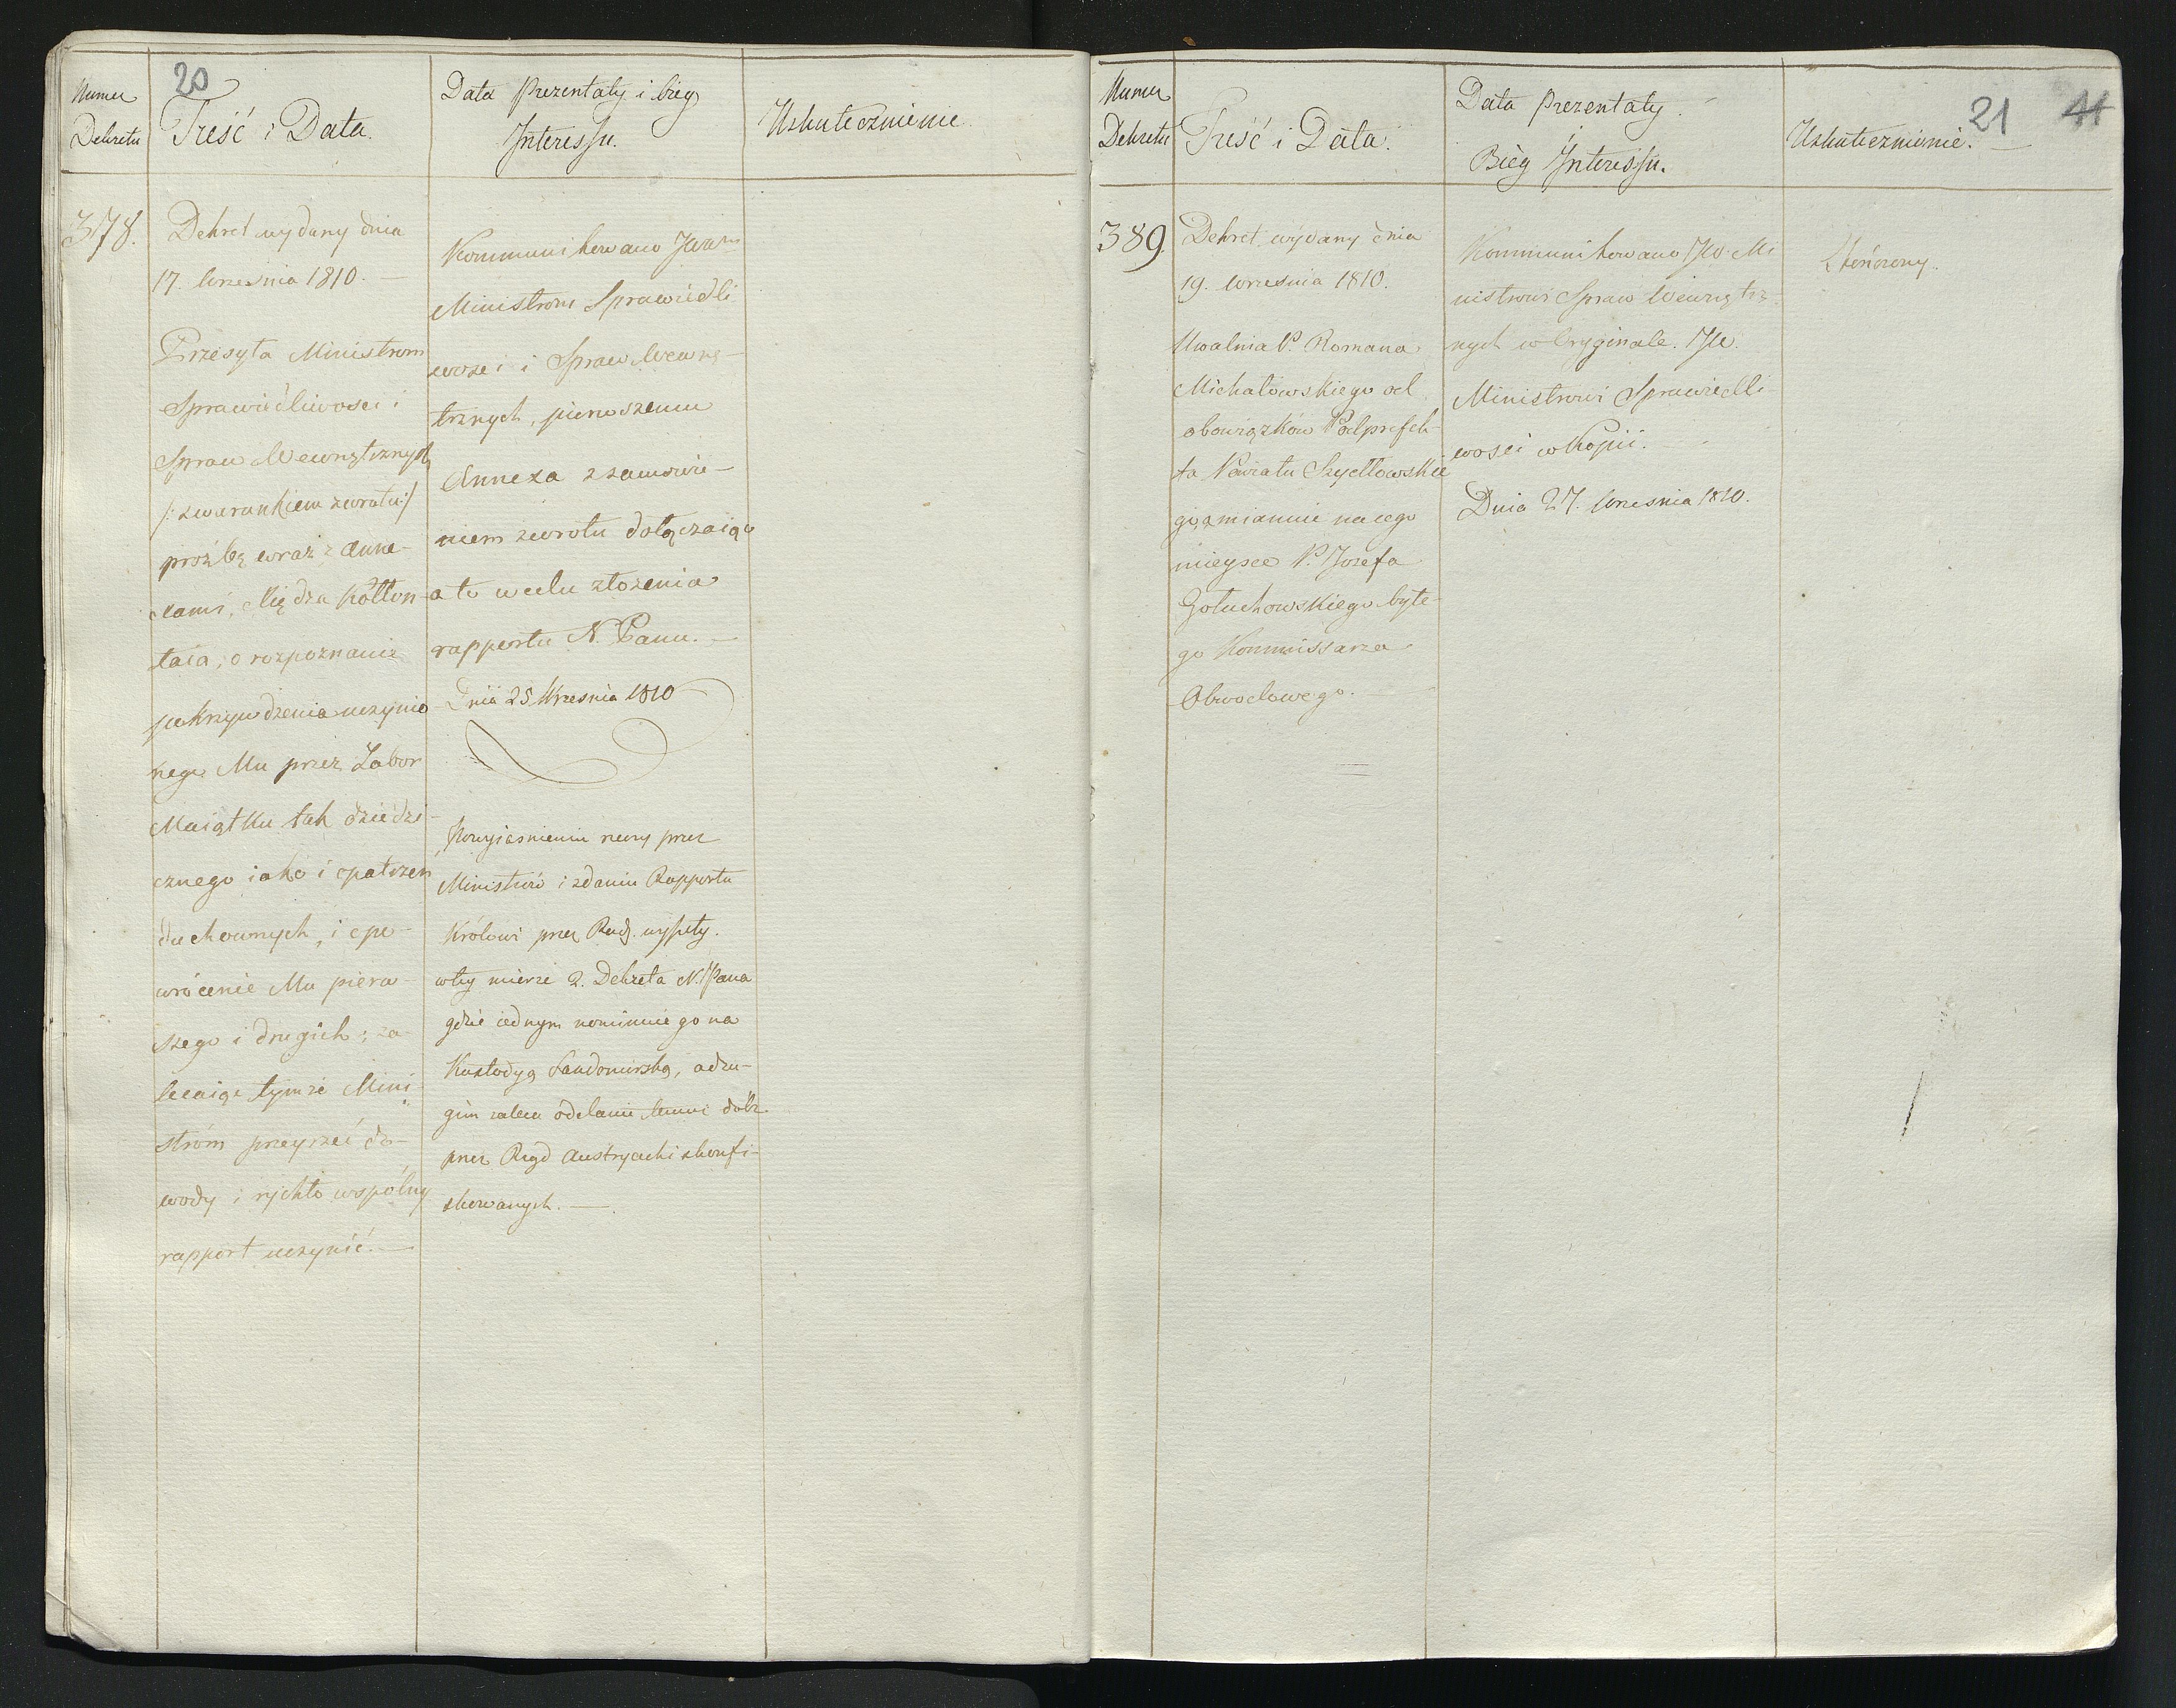 20
Numer
Dekretu
Treść i Data.
Data Prezentaty i bieg
Interessu.
Uskutecznienie
378.
Dekret wydany dnia
17. Września 1810. —
Przesyła Ministrom
Sprawiedliwosci i
Spraw Wewnętrznych
/: z warunkiem zwrotu :/
proźbę wraz z Anne-
xami, Xiędza Kołłon-
taia, o rozpoznanie
pokrzywdzenia uczynio-
nego Mu przez Zabor
Maiątku tak dziedzi-
cznego iako i opatrzeń
duchownych, i o po-
wrócenie Mu pierw-
szego i drugich; za-
lecaiąc tymże Mini-
strom przeyrzeć do-
wody i rychło wspólny
rapport uczynić. —
Kommunikowano JWW
Ministrom Sprawiedli
wosci i Spraw Wewnę-
trznych, pierwszemu
Annexa z zamówie-
niem zwrotu dołączaiąc
a to w celu złożenia
rapportu N. Panu. —
Dnia 25 Września 1810
Po wyiaśnieniu rzeczy przez
Ministrów i zdaniu Rapportu
Królowi przez Radę wyszły
w tey mierze 2. Dekreta N. Pana
gdzie iednym nominuie go na
Kustodyą Sandomirską, a dru-
gim zaleca oddanie temuż dóbr
przez Rząd Austryacki skonfi-
skowanych. —
21 41
Numer
Dekretu
Treść i Data.
Data Prezentaty
i
Bieg Interessu.
Uskutecznienie. —
389.
Dekret wydany dnia
19. Września 1810.
Uwalnia P. Romana
Michałowskiego od
obowiązków Podprefek-
ta Powiatu Szydłowskie
go, a mianuie na iego
mieysce P. Jozefa
Gołuchowskiego byłe-
go Kommissarza
Obwodowego.
Kommunikowano JW. Mi
nistrowi Spraw Wewnętrz-
nych w Oryginale. JW.
Ministrowi Sprawiedli-
wosci w Kopii. —
Dnia 27. Września 1810.
Skończony.